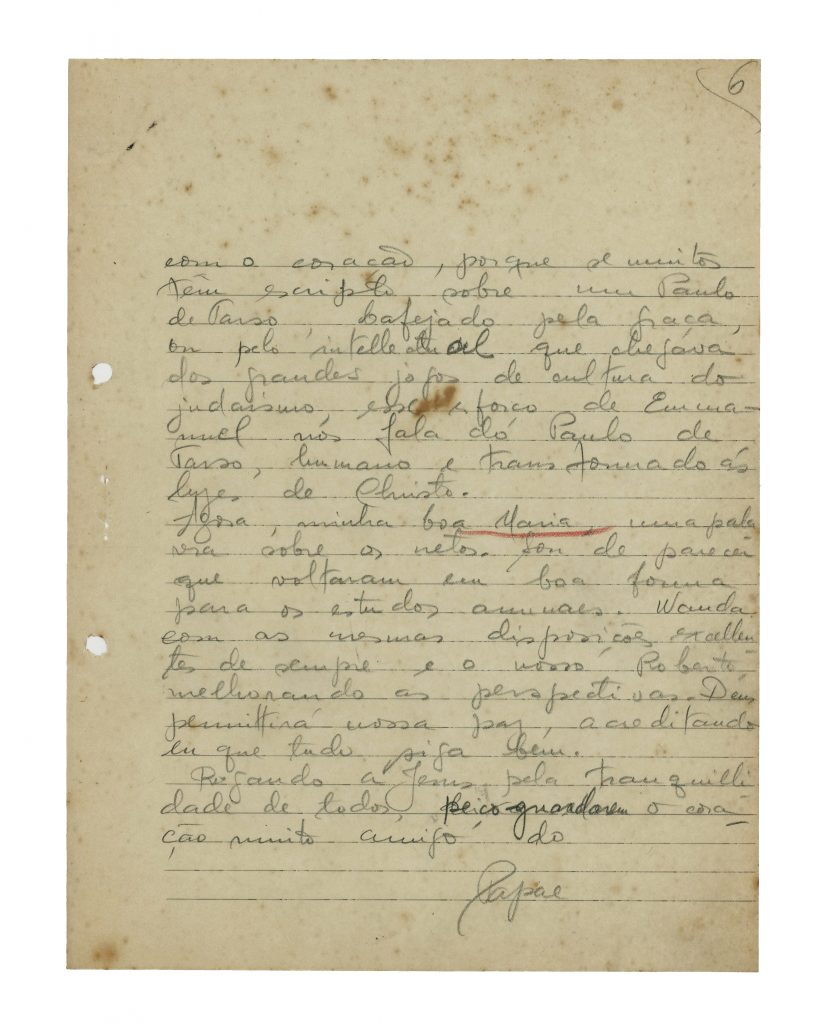 6
com o coracão, porque se muitos
têm escripto sobre um Paulo
de Tarso, bafejado pela graça,
ou pelo intellectual que chegava
dos grandes jogos de cultura do
judaismo, esse esforço de Emma-
nuel nós fala dó Paulo de
Tarso, humano e transformado ás
luzes de Christo.
Agora, minha boa Maria, uma pala
vra sobre os netos. Sou de parecer
que voltaram em boa forma
para os estudos annuaes. Wanda
com as mesmas disposições excellen
tes de sempre e o nosso Roberto
melhorando as perspectivas. Deus
permittirá nossa paz, acreditando
eu que tudo siga bem.
Rogando a Jesus pela tranquilli
dade de todos, peiço guardarem o cora-
ção muito amigo do
Papae